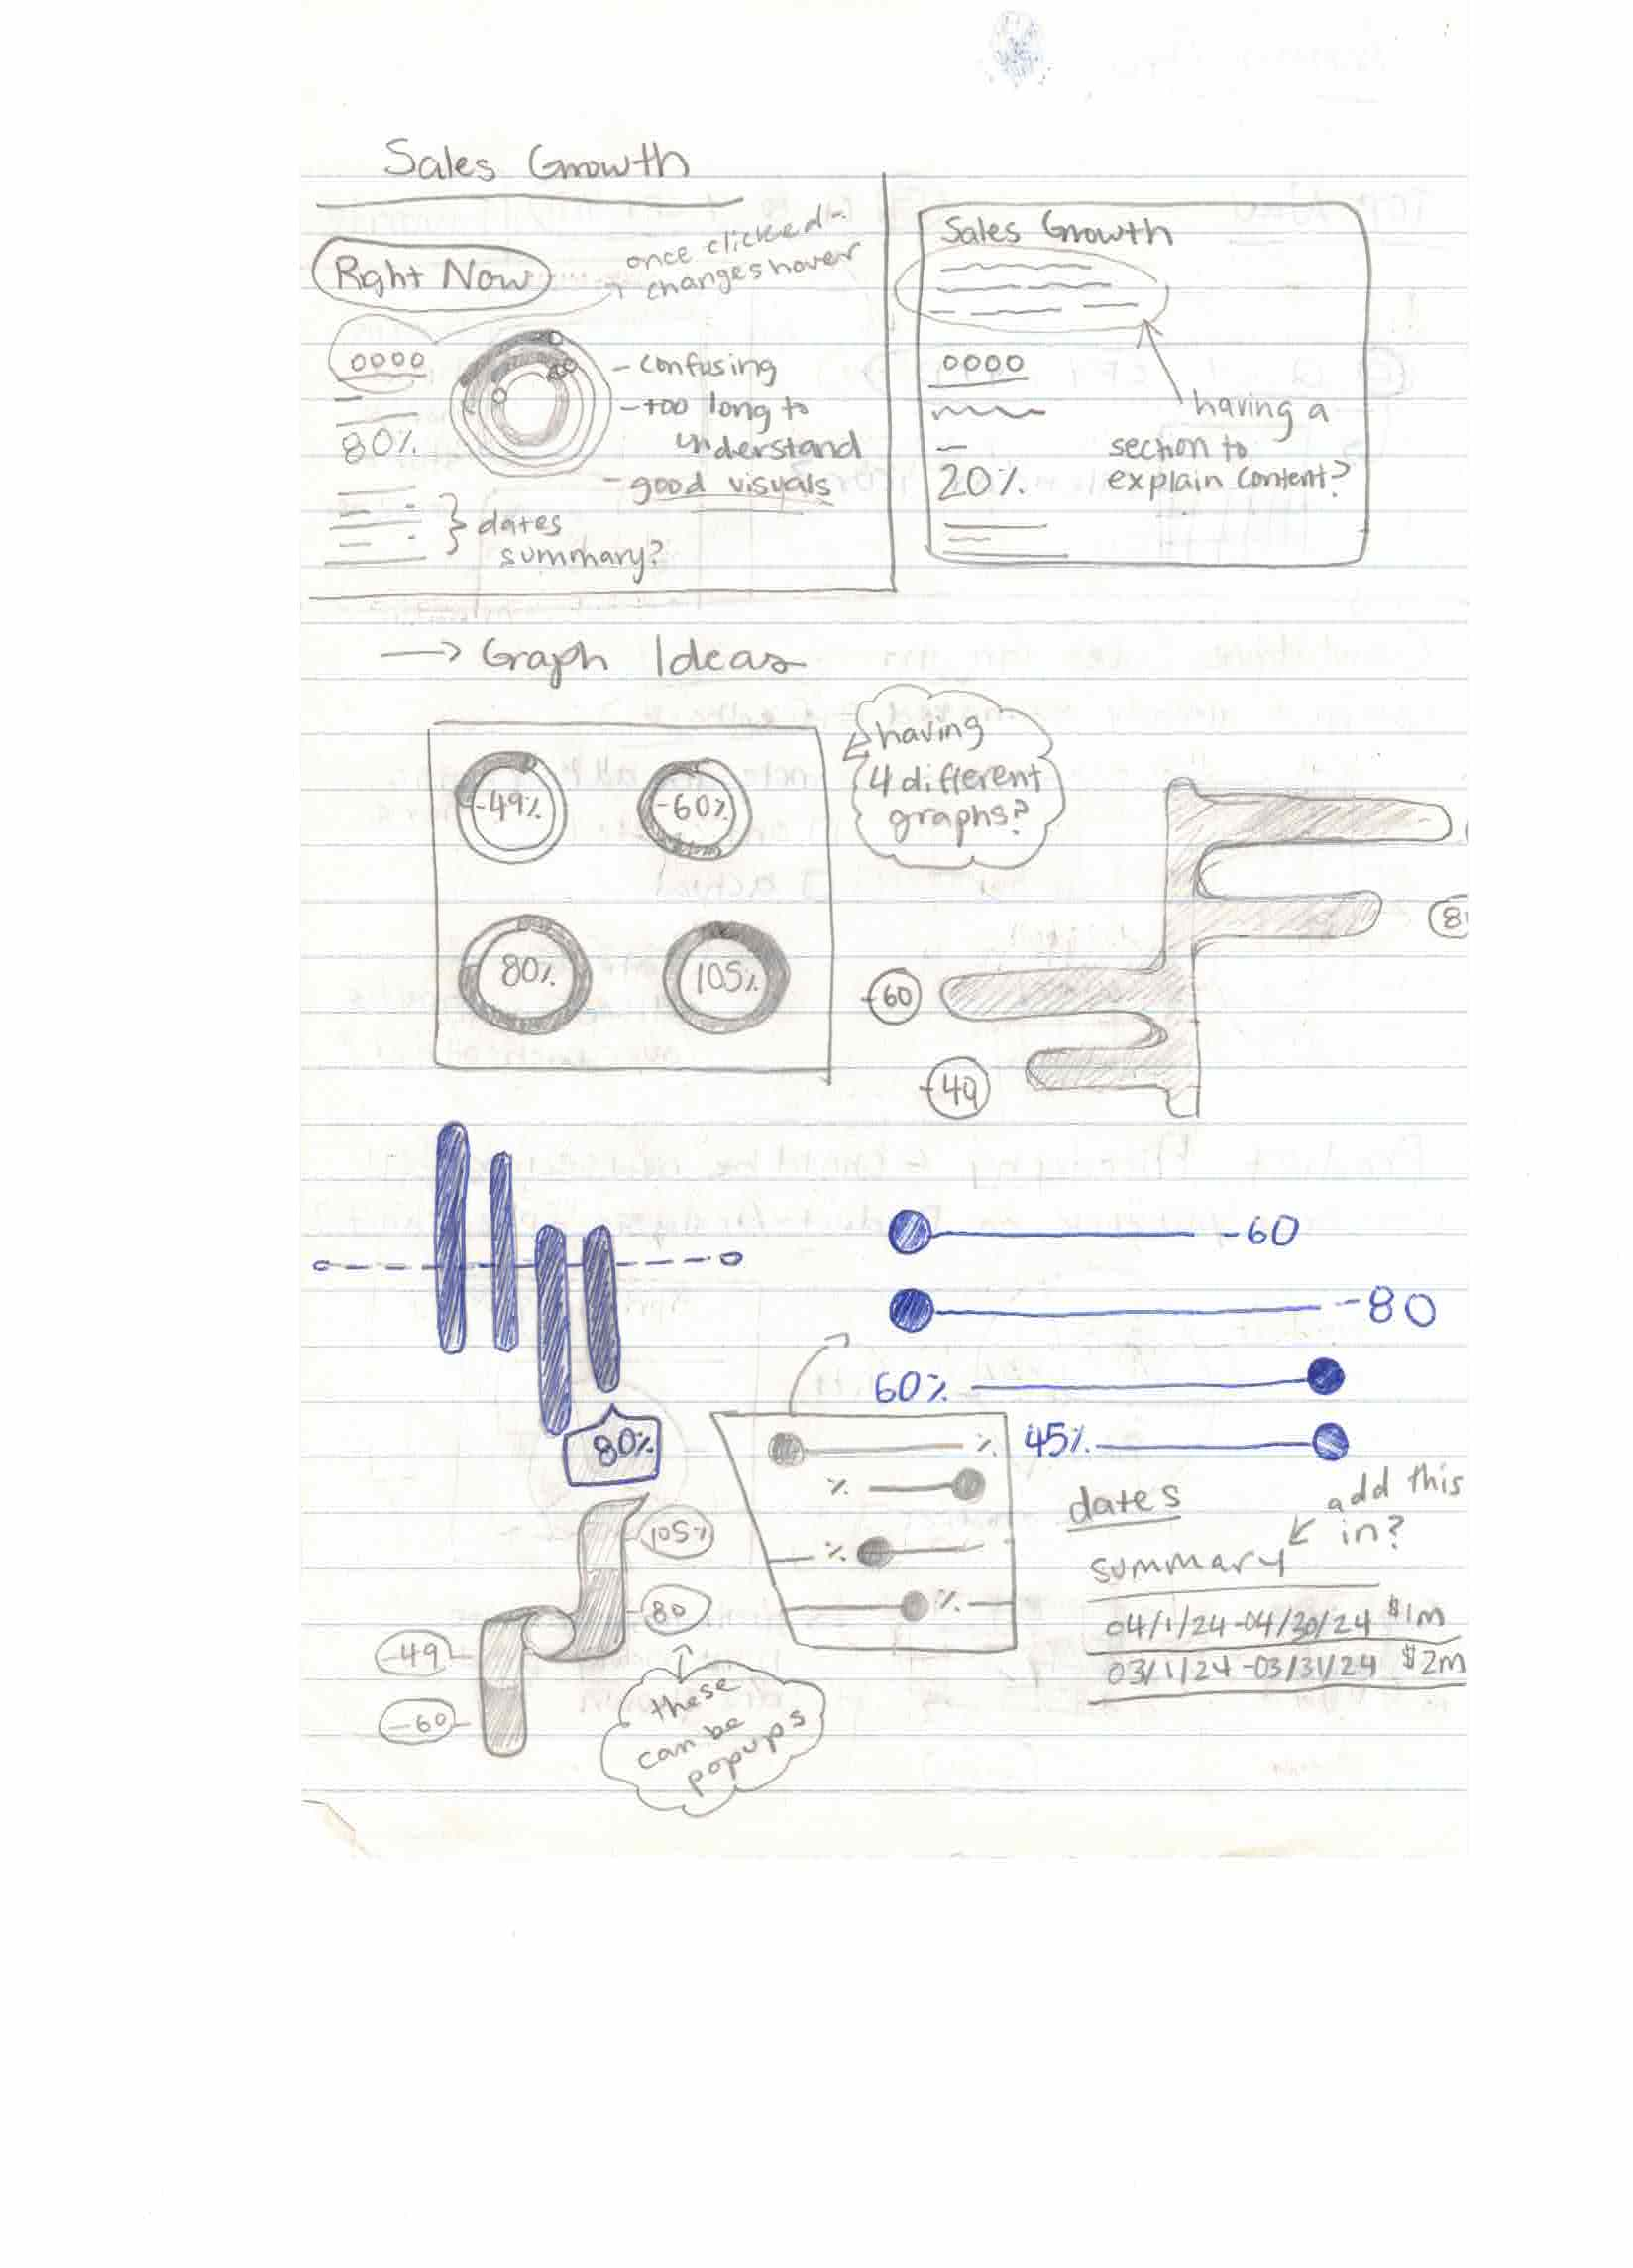 Sales Growth
Right Now
once clicked-
changes hover
0000
80%
- confusing
- too long to
understand
- good visuals
dates
summary?
Sales Growth
0000
20%
having a
section to
explain content?
→ Graph Ideas
-49%
-60%
80%
105%
having
4 different
graphs?
-60
-49
80%
-60
-80
60%
45%
%
%
%
%
dates
add this
in?
summary
04/1/24-04/30/24 $1m
03/1/24-03/31/24 $2m
105%
80
-49
-60
these
can be
popups